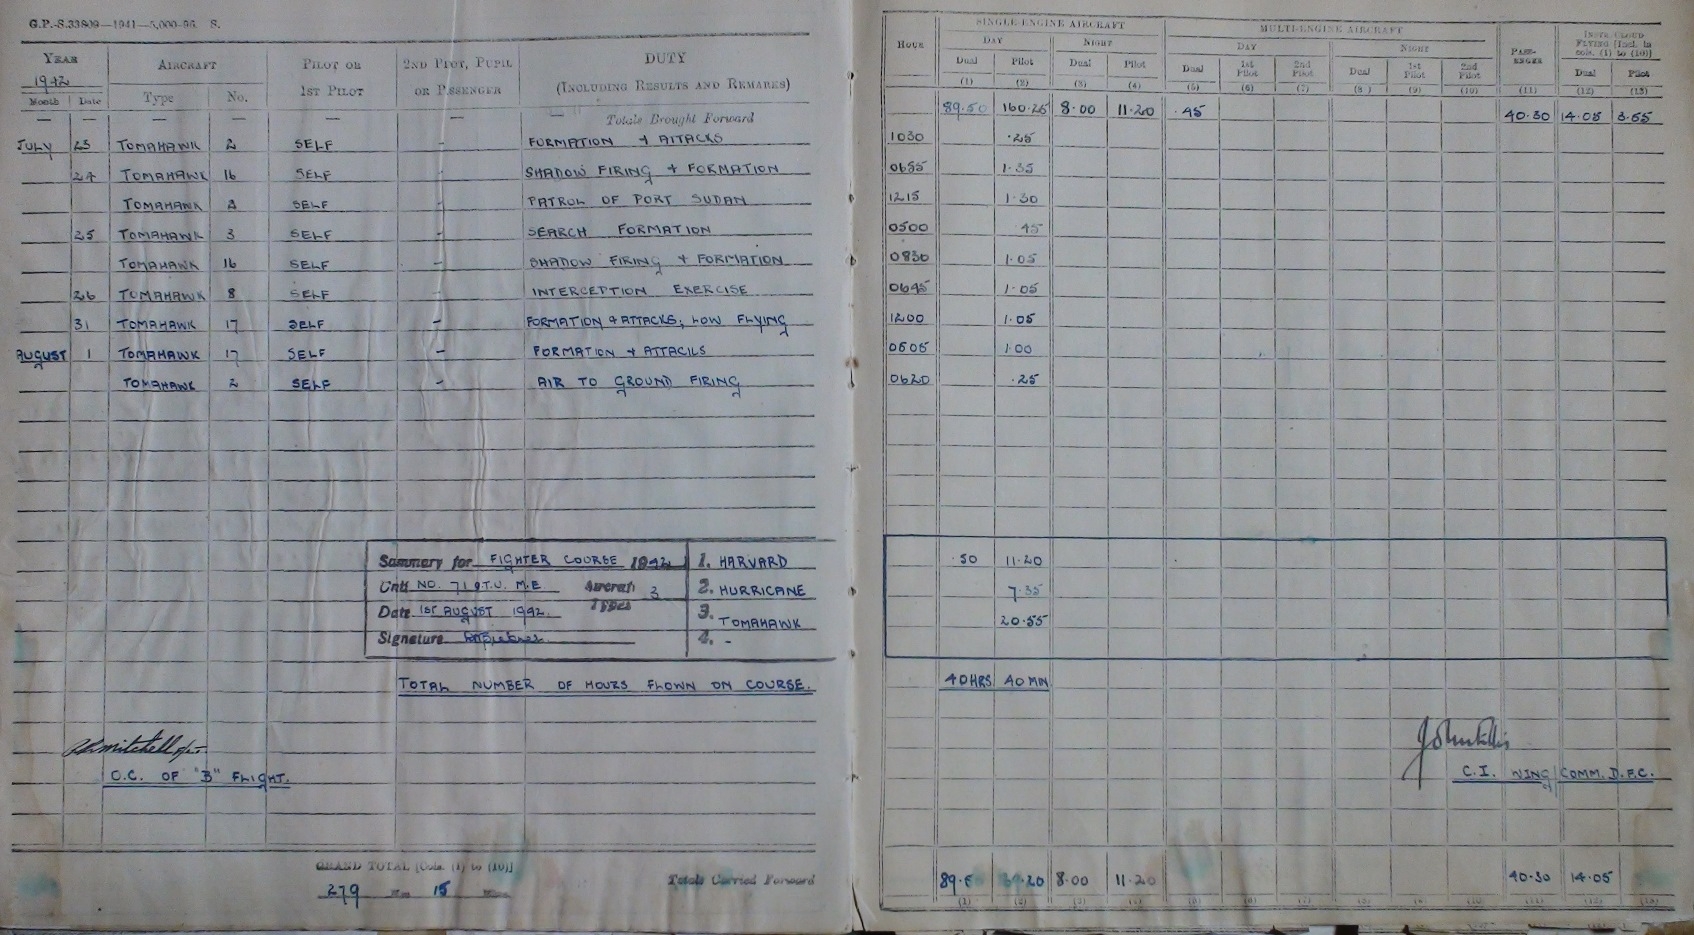 G.P.-S.33809—1941—5,000-96. S.
YEAR AIRCRAFT PILOT OR 2ND PILOT, PUPIL DUTY
1942 1ST PILOT OR PASSENGER (INCLUDING RESULTS AND REMARKS)
Month Date Type No.
— — — — — — Totals Brought Forward
JULY 23 TOMAHAWK 2 SELF - FORMATION + ATTACKS
24 TOMAHAWK 16 SELF - SHADOW FIRING + FORMATION
TOMAHAWK SELF - PATROL OF PORT SUDAN
25 TOMAHAWK 3 SELF - SEARCH FORMATION
TOMAHAWK 16 SELF - SHADOW FIRING + FORMATION
26 TOMAHAWK 8 SELF - INTERCEPTION EXERCISE
31 TOMAHAWK 17 SELF - FORMATION + ATTACKS; LOW FLYING
AUGUST 1 TOMAHAWK 17 SELF - FORMATION + ATTACKS
TOMAHAWK 2 SELF - AIR TO GROUND FIRING
Summary for FIGHTER COURSE 1942 1. HARVARD
Unit NO. 71 O.T.U. M.E Aircraft 3 2. HURRICANE
Date 1ST AUGUST 1942. Types 3. TOMAHAWK
Signature 4. -
TOTAL NUMBER OF HOURS FLOWN ON COURSE.
Mitchell
O.C. OF "B" FLIGHT.
GRAND TOTAL [Cols. (1) to (10)]
279 Hrs 15 Mins.
Totals Carried Forward
SINGLE-ENGINE AIRCRAFT MULTI-ENGINE AIRCRAFT PASS-ENGER INSTR/CLOUD FLYING [Incl. in cols. (1) to (10)]
HOUR DAY NIGHT DAY NIGHT
Dual Pilot Dual Pilot Dual 1st Pilot 2nd Pilot Dual 1st Pilot 2nd Pilot Dual Pilot
(1) (2) (3) (4) (5) (6) (7) (8) (9) (10) (11) (12) (13)
89.50 160.25 8.00 11.20 .45 40.30 14.05 3.55
1030 .25
0655 1.35
1215 1.30
0500 .45
0830 1.05
0645 1.05
1200 1.05
0505 1.00
0620 .25
.50 11.20
7.35
20.55
40HRS 40MN
John Ellis
C.I. WING COMM. D.F.C.
8.00 11.20 40.30 14.05
(1) (2) (3) (4) (5) (6) (7) (8) (9) (10) (11) (12) (13)